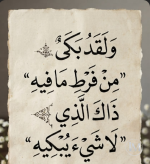 وَلَقَدْ بَكَىٰ
”مِنْ فَرْطِ مَا فِيهِ“
ذَاكَ الَّذِي
”لَا شَيْءَ يُبْكِيهِ“